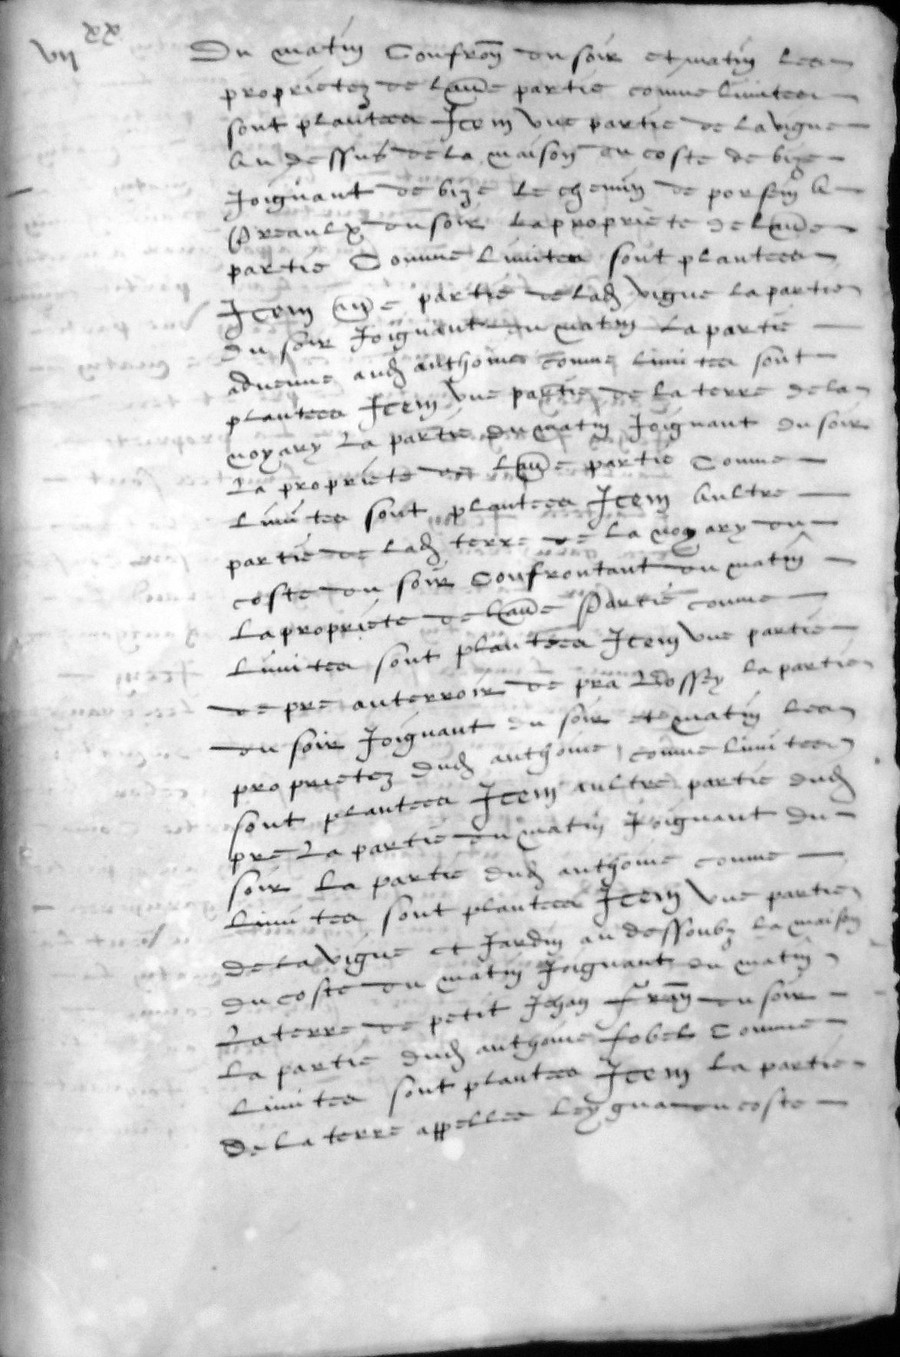 vii xx
Du matin Confron du soir et matin les
proprietez de laue partie comme limites
sont plantees Item vne partie de la vigne
Au dessus de la maison du coste de bize
Joignant de bize le chemin de porsein a
Preaulx du soir la propriete de laue
partie Comme limites sont plantees
Item aue partie de lad vigne la partie
du soir Joignant du matin la partie
aduenue aud anthoine comme limites sont
plantees Item vne partie de la terre de la
noyary la partie du matin Joignant du soir
la propriete de laue partie Comme
limites sont plantees Item aultre
partie de lad terre de la noyary du
coste du soir Confrontant du matin
la propriete de laue Partie comme
limites sont plantees Item vne partie
de pre au terroir de pra Rossey la partie
du soir Joignant du soir et matin les
proprietez dud anthoine comme limites
sont plantees Item aultre partie dud
pre la partie du matin Joignant du
soir la partie dud anthoine comme
limites sont plantees Item vne partie
de la vigne et Jardin au dessoubz la maison
du coste du matin Joignant du matin
la terre de petit Jehan du soir
la partie dud anthoine fobel Comme
limites sont plantees Item la partie
de la terre appellee du coste